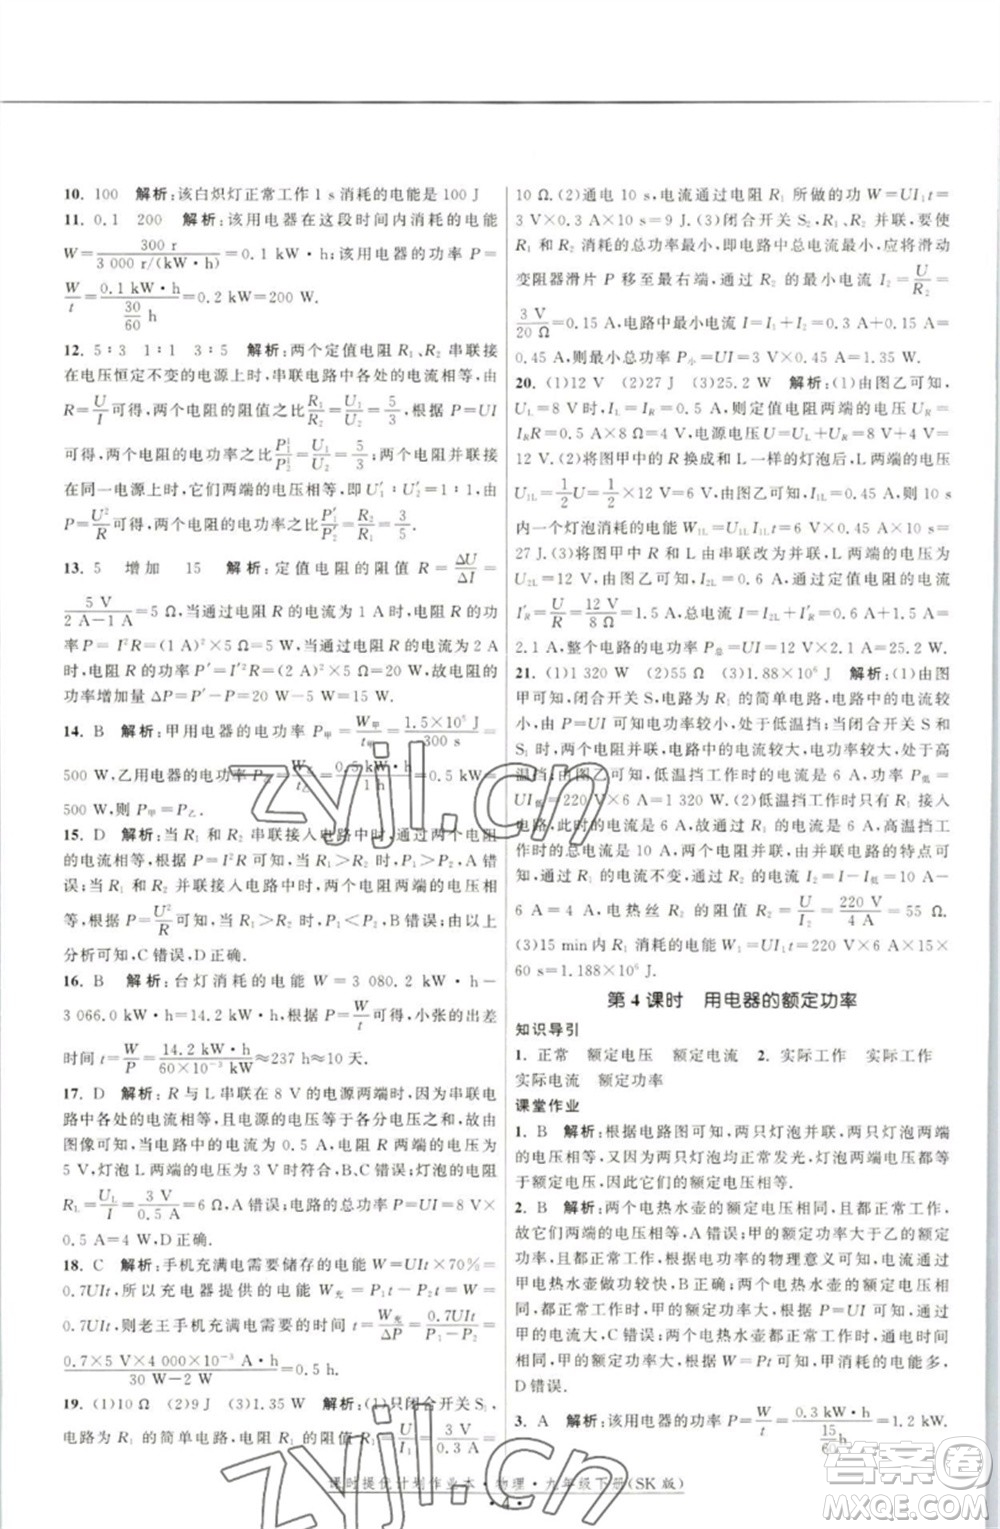 10. 100 解析:该白炽灯正常工作 1 s 消耗的电能是 100 J
11. 0.1 200 解析:该用电器在这段时间内消耗的电能
W=300 r/3 000 r/(kW·h)=0.1 kW·h,该用电器的功率 P=
W/t=0.1 kW·h/(30/60 h)=0.2 kW=200 W.
12. 5∶3 1∶1 3∶5 解析:两个定值电阻 R₁、R₂ 串联接
在电压恒定不变的电源上时,串联电路中各处的电流相等,由
R=U/I可得,两个电阻的阻值之比R₁/R₂=U₁/U₂=5/3,根据 P=UI
可得,两个电阻的电功率之比P₁/P₂=U₁/U₂=5/3;两个电阻并联接
在同一电源上时,它们两端的电压相等,即 U′₁∶U′₂=1∶1,
由 P=U²/R可得,两个电阻的电功率之比P′₁/P′₂=R₂/R₁=3/5.
13. 5 增加 15 解析:定值电阻的阻值 R=ΔU/ΔI=
5 V/(2 A-1 A)=5 Ω,当通过电阻 R 的电流为 1 A 时,电阻 R 的功
率 P=I²R=(1 A)²×5 Ω=5 W,当通过电阻 R 的电流为 2 A
时,电阻 R 的功率 P′=I′²R=(2 A)²×5 Ω=20 W,故电阻的
功率增加量 ΔP=P′-P=20 W-5 W=15 W.
14. B 解析:甲用电器的电功率 P甲=W甲/t甲=1.5×10⁵ J/300 s=
500 W,乙用电器的电功率 P乙=W乙/t乙=0.5 kW·h/1 h=
500 W,则 P甲=P乙.
15. D 解析:当 R₁ 和 R₂ 串联接入电路中时,通过两个电阻
的电流相等,根据 P=I²R 可知,当 R₁>R₂ 时,P₁>P₂,A 错
误;当 R₁ 和 R₂ 并联接入电路中时,两个电阻两端的电压相等,
根据 P=U²/R可知,当 R₁>R₂ 时,P₁<P₂,B 错误;由以上
分析可知,C 错误,D 正确.
16. B 解析:台灯消耗的电能 W=3 080.2 kW·h-
3 066.0 kW·h=14.2 kW·h,可供台灯工作,小张的出差
时间 t=W/P=14.2 kW·h/(60×10⁻³ kW)≈237 h≈10 天.
17. D 解析:R 与 L 串联在 8 V 的电源两端时,因为串联电
路中各处的电流相等,且电源的电压等于各分电压之和,由
图像可知,当电路中的电流为 0.5 A 时,电阻两端的电压为
5 V,灯泡 L 两端的电压为 3 V,B、C 错误;灯泡的电阻
R_L=U_L/I=3 V/0.5 A=6 Ω,A 错误;电路的总功率 P=UI=8 V×
0.5 A=4 W,D 正确.
18. C 解析:手机充满电需要储存的电能 W=UIt×70%=
0.7UIt,所以充电器提供的电能 W充=
0.7UIt,则老王手机充满电需要的时间 t=W充/ΔP=0.7UIt/ΔP=
0.7×5 V×4 000×10⁻³ A·h/(30 W-2 W)=0.5 h.
19. (1)10 Ω (2)9 J (3)1.35 W 解析:(1)只闭合开关 S₁,
电路为 R₁ 的简单电路,电阻 R₁ 的阻值 R₁=U/I₁=3 V/0.3 A=
10 Ω.(2)通电 10 s,电流通过电阻 R₁ 所做的功 W=UI₁t=
3 V×0.3 A×10 s=9 J.(3)闭合开关 S₁、S₂,R₁、R₂ 并联,要使
R₁ 和 R₂ 消耗的总功率最小,即电路中总电流最小,应将滑动
变阻器滑片 P 移至最右端,通过 R₂ 的最小电流 I₂=U/R₂=
3 V/20 Ω=0.15 A,电路中最小电流 I=I₁+I₂=0.3 A+0.15 A=
0.45 A,则最小总功率 P小=UI=3 V×0.45 A=1.35 W.
20. (1)12 V (2)27 J (3)25.2 W 解析:(1)由图乙可知,
U_L=8 V 时,I_L=I_R=0.5 A,则定值电阻两端的电压 U_R=
I_RR=0.5 A×8 Ω=4 V,电源电压 U=U_L+U_R=8 V+4 V=
12 V.(2)将图甲中的 R 换成和 L 一样的灯泡后,L 两端的电压
U₁L=1/2U=1/2×12 V=6 V,由图乙可知,电流 I₁L=0.45 A,10 s
内一个灯泡消耗的电能 W₁L=U₁LI₁Lt=6 V×0.45 A×10 s=
27 J.(3)将图甲中 R 与 L 由串联改为并联,L 两端的电压
U₂L=12 V,由图乙可知,电流 I₂L=0.6 A,通过电阻的电流
I′R=U/R=12 V/8 Ω=1.5 A,总电流 I=I₂L+I′R=0.6 A+1.5 A=
2.1 A,整个电路的电功率 P总=UI=12 V×2.1 A=25.2 W.
21. (1)1 320 W (2)55 Ω (3)1.188×10⁶ J 解析:(1)由图
甲可知,闭合开关 S,电路为 R₁ 的简单电路,电路中的电流较
小,由 P=UI 可知电功率较小,处于低温挡;当闭合开关 S 和
S₁ 时,两电阻并联,电路中的总电流较大,电功率较大,处于高
温挡;由图乙可知,低温挡工作时的电流为 6 A,电功率 P低=
UI低=220 V×6 A=1 320 W.(2)低温挡工作时,只有 R₁ 接入
电路,此时电路中的电流为 6 A,由图乙可知,高温挡工
作时的总电流为 10 A,根据并联电路的特点可
知,通过 R₁ 的电流不变,通过 R₂ 的电流 I₂=I-I低=10 A-
6 A=4 A,电热丝 R₂ 的阻值 R₂=U/I₂=220 V/4 A=55 Ω.
(3)15 min 内 R₁ 消耗的电能 W=UI₁t=220 V×6 A×15×
60 s=1.188×10⁶ J.
第 4 课时 用电器的额定功率
知识导引
1. 正常 额定电压 额定电流 2. 实际工作 实际工作
实际电流 额定功率
课堂作业
1. B 解析:根据电路图可知,两只灯泡并联,两只灯泡两端
的电压相等,由两只灯泡都正常发光,灯泡两端的实际电压
等于额定电压,因此它们的额定电压相等.
2. B 解析:两个电热水壶的额定电压相等,都正常工作,
故它们两端的电压相等,A 错误;甲的额定功率大于乙的额
定功率,都正常工作,根据电功率的物理意义可知,
甲电热水壶做功更快,B 正确;甲、乙两个电热水壶的额定
电压相同,甲的额定功率大,根据 P=UI 可知,正常工作时,
甲的电流大,C 错误;都正常工作时,通电时间
相同,甲的额定功率大,由 W=Pt 可知,甲消耗的电能多,
D 错误.
3. A 解析:该用电器的电功率 P=W/t=0.3 kW·h/(15/60 h)=1.2 kW
课时提优计划作业本·物理·九年级下册(SK 版)
·4·
zyjl.cn
答案圈
MXQE.COM